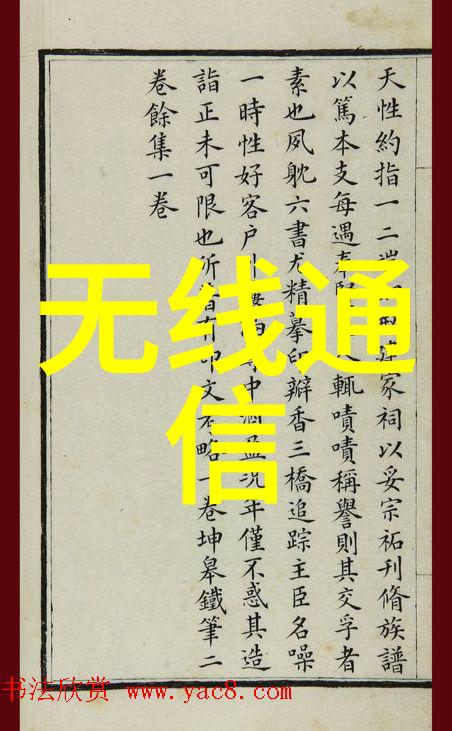 天性約指一二家祠以妥宗祏刊脩族譜
以篤本支每遇輒嘖嘖稱譽則其交孚者
素也夙躭六書尤精摹印瓣香三橋追踪主臣名噪
一時性好客户中況年僅不惑其造
詣正未可限也所有印文略一卷坤皋鐵筆二
卷餘集一卷
无线通
信
书法欣赏 www.yac8.com